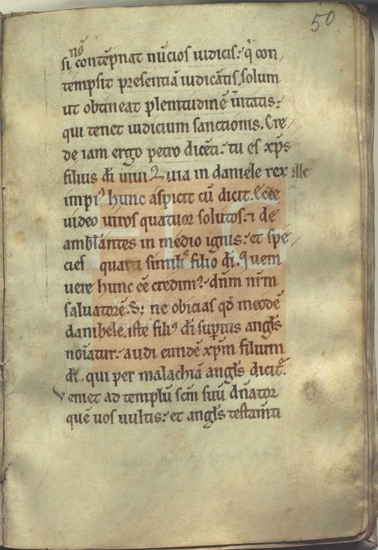 50
nō
si contēpnat nūcios iudicis. q̇ con
tempsit presentiā iudicātis solum
ut obtineat plenitudinē ūitatis.
qui tenet iudicium sanctionis. Cre
de iam ergo petro dicēti. tu es xp̄s
filius dī uiui. Quia in daniele rex ille
impi' hunc aspicit cū dicit. Ecce
video uiros quatuor solutos. ⁊ de
ambulantes in medio ignis. et spe
cies quarti similis filio dī. quem
uere hunc eē credim'. dn̄m nr̄m
saluatorē. Sı ne obicias qd̄
danihele. iste fili' dī superius angl̄s
noīatur. audi eundē xp̄m filium
dī. qui per malachiā angl̄s dicit'.
Veniet ad templū scm̄ suū dn̄ator
quē uos uultis. et angl̄s testamti